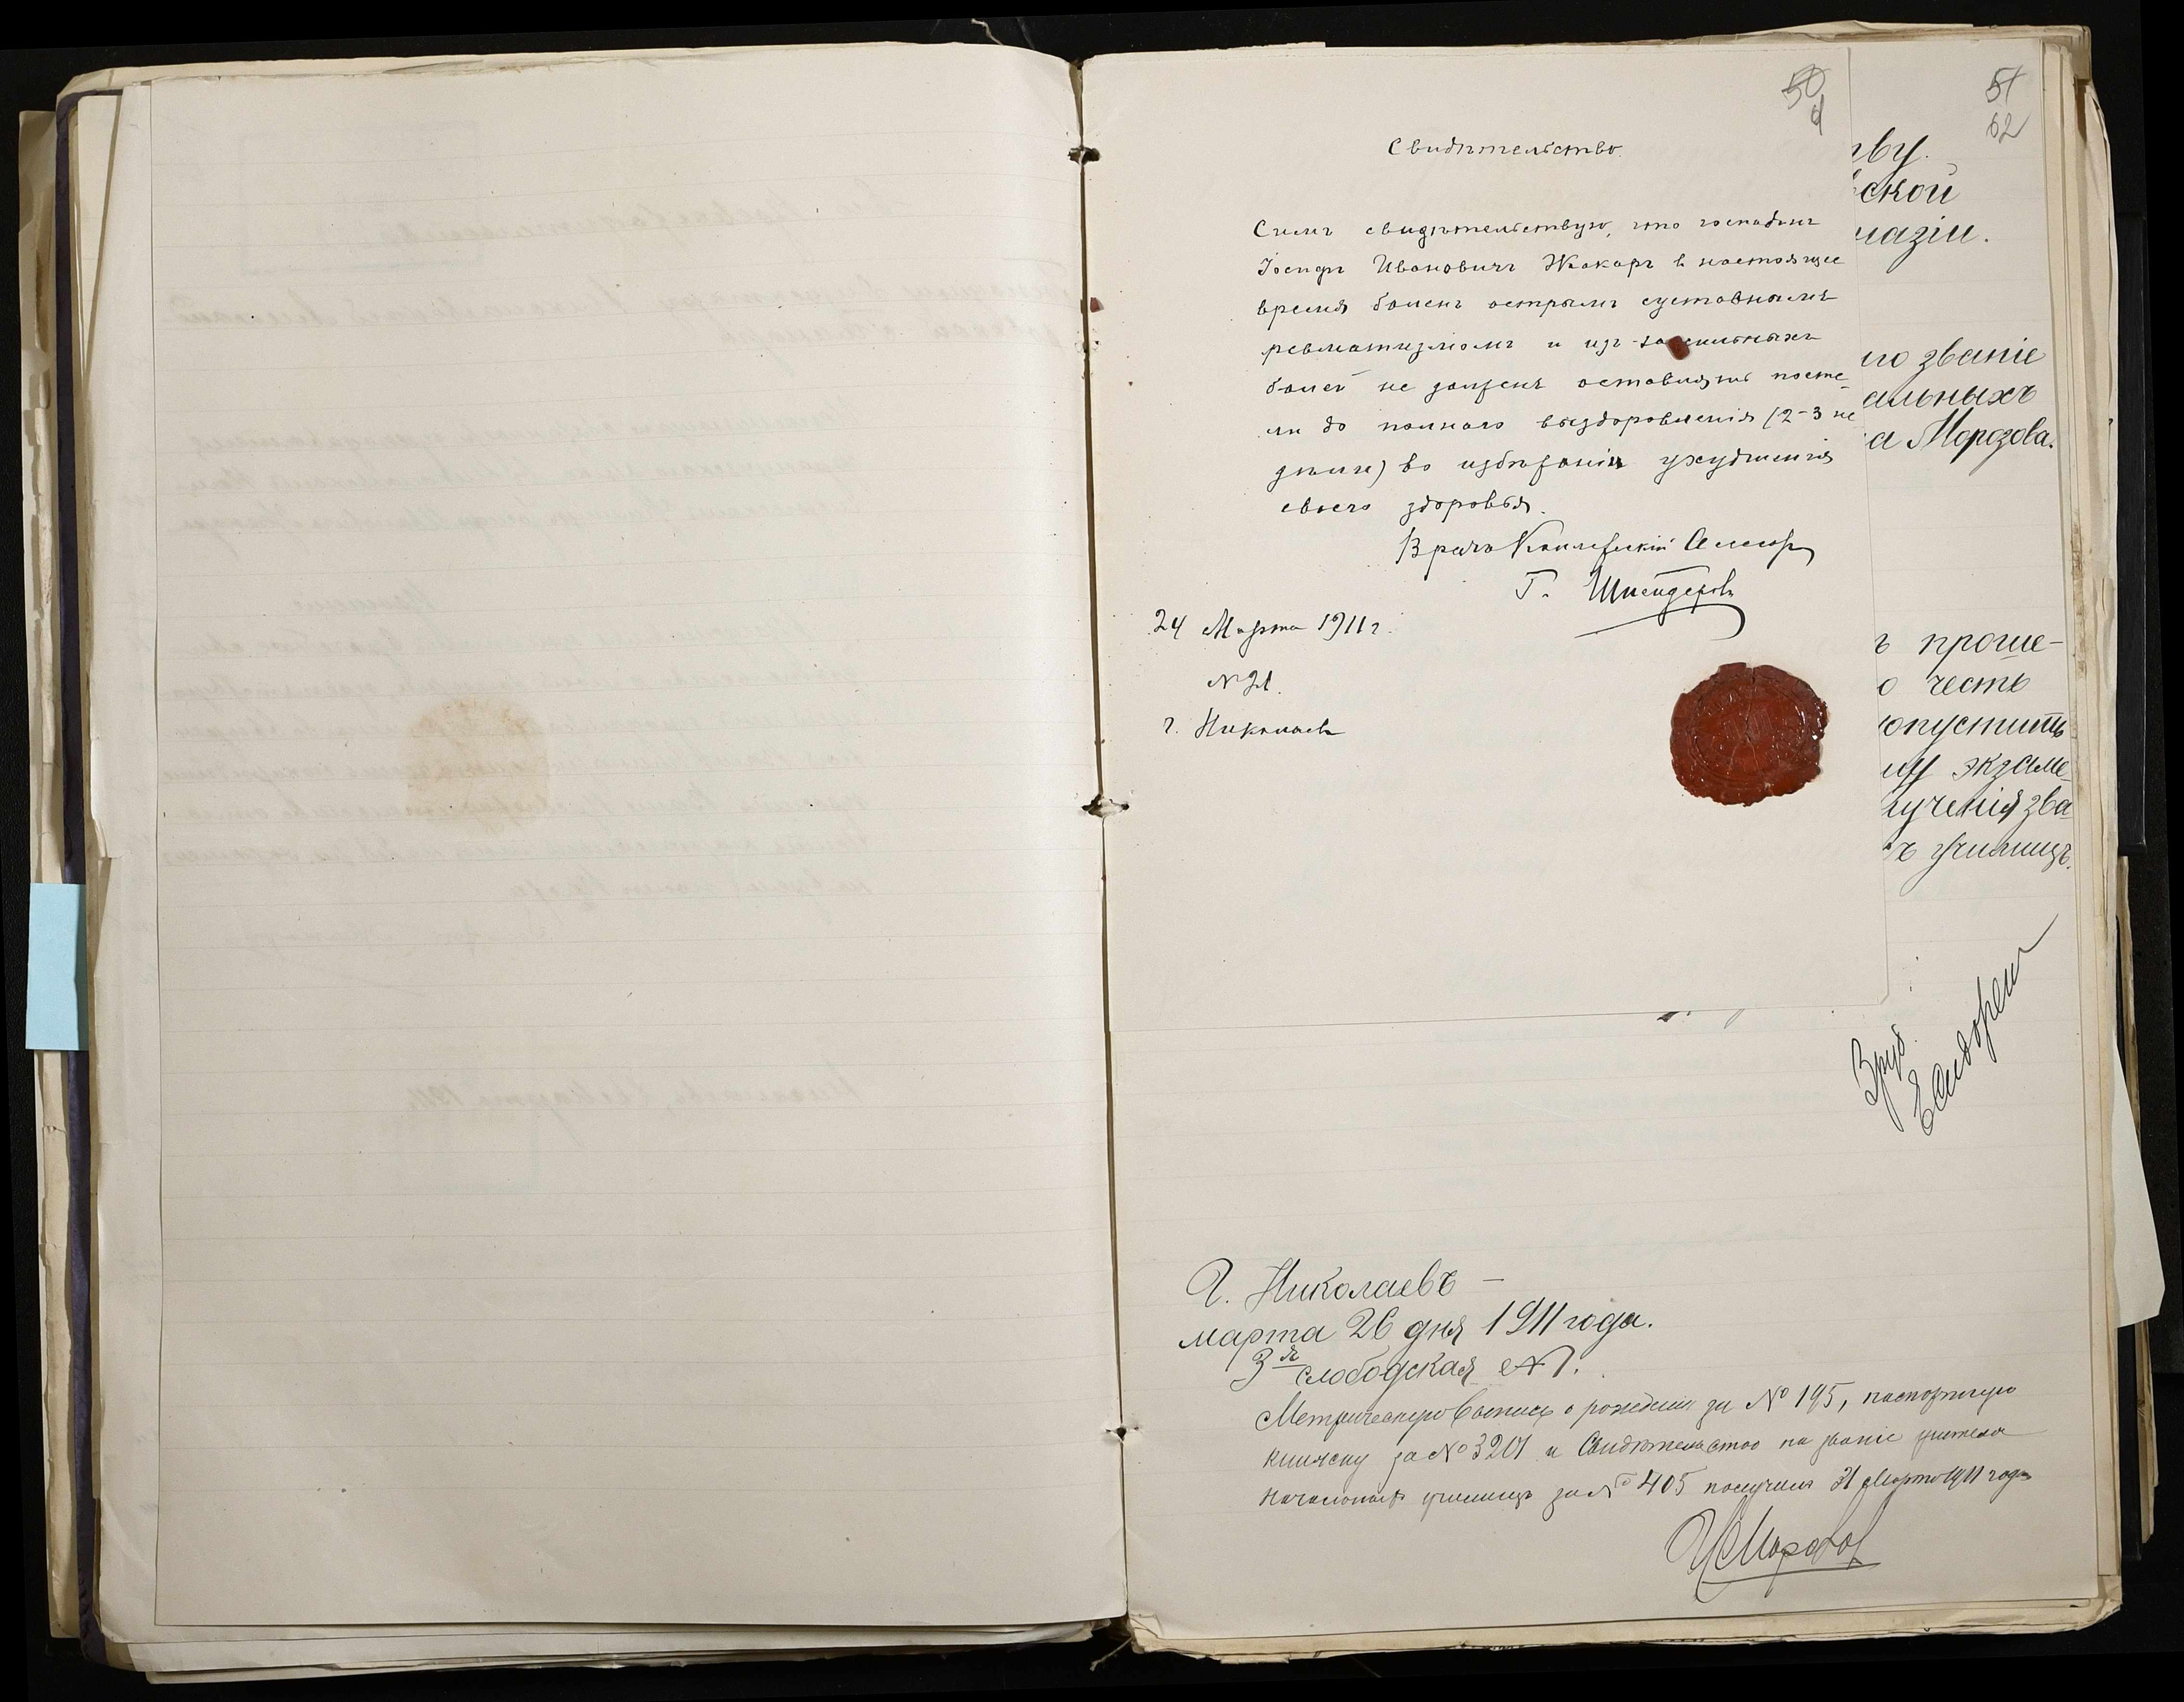 50
51
62
Свидѣтельство.
Симъ свидѣтельствую, что господинъ
Іосифъ Ивановичъ Жакаръ в настоящее
время боленъ острымъ суставнымъ
ревматизмомъ и изъ-за сильныхъ
болей не долженъ оставлять посте-
ли до полного выздоровленія (2-3 не
дѣли) во избѣжаніи ухудшенія
своего здоровья.
Врачъ Коллежскій Ассесоръ
Г.
24 Марта 1911 г.
№ 21.
г. Николаевъ
ву.
ской
назіи.
званіе
альныхъ
а Морозова.
ъ проше-
о честь
опустить
му экзаме
лученія зва
ъ училищъ.
Г. Николаевъ –
марта 26 дня 1911 года.
3я слободская №
Метрическую выпись о рожденіи за № 195, паспортную
книжку за № 3201 и Свидѣтельство на званіе учителя
начальныхъ училищъ за № 405 получилъ 31 Марта 1911 года
И Морозов